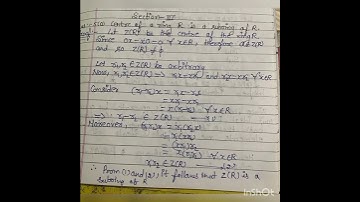 Section-III
5(a) centre of a ring R is a subring of R.
Let Z(R) be the centre of the ring R
Since 0x=x0=0 ∀ x∈R, therefore 0∈Z(R)
and so Z(R) ≠ ϕ
Let x₁,x₂ ∈ Z(R) be arbitrary
Now, x₁,x₂∈Z(R) ⇒ x₁x=xx₁ and x₂x=xx₂ ∀ x∈R
Consider (x₁-x₂)x = x₁x-x₂x
= xx₁-xx₂
= x(x₁-x₂) ∀ x∈R
⇒ x₁-x₂ ∈ Z(R)
Moreover, (x₁x₂)x = x₁(x₂x)
= x₁(xx₂)
= (x₁x)x₂
= x(x₁x₂) ∀ x∈R
x₁x₂ ∈ Z(R)
∴ From (1) and (2), It follows that Z(R) is a
subring of R
InShOt